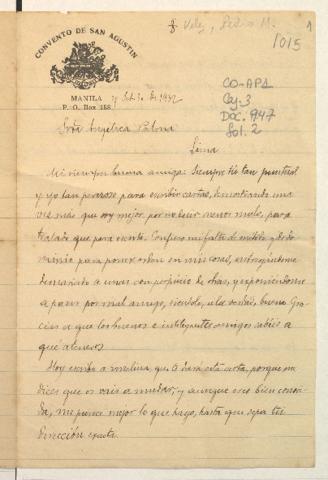 Velez, Pedro M.
1
1015
CONVENTO DE SAN AGUSTIN
MANILA
P. O. Box 158
CO-AP1
Cj-3
DOC. 947
fol. 2
Srta Angelica Palma
Lima
Mi siempre buena amiga: Siempre tú tan puntual
y yo tan perezoso para escribir cartas, demostrando una
vez más que soy mejor, por no decir menos malo, para
tratado que para escrito. Confieso mi falta de método y de do
minio para poner orden en mis cosas, entregándome
demasiado a unas con perjuicio de otras, y exponiéndome
a pasar por mal amigo, siéndolo, a la verdad, bueno. Gra
cias a que los buenos e inteligentes amigos sabéis a
qué ateneros
Hoy escribo a melina, que te dará esta carta, porque me
dices que os vais a mudar; y aunque eres bien conoci
da, me parece mejor lo que hago, hasta que sepa tu
dirección exacta.